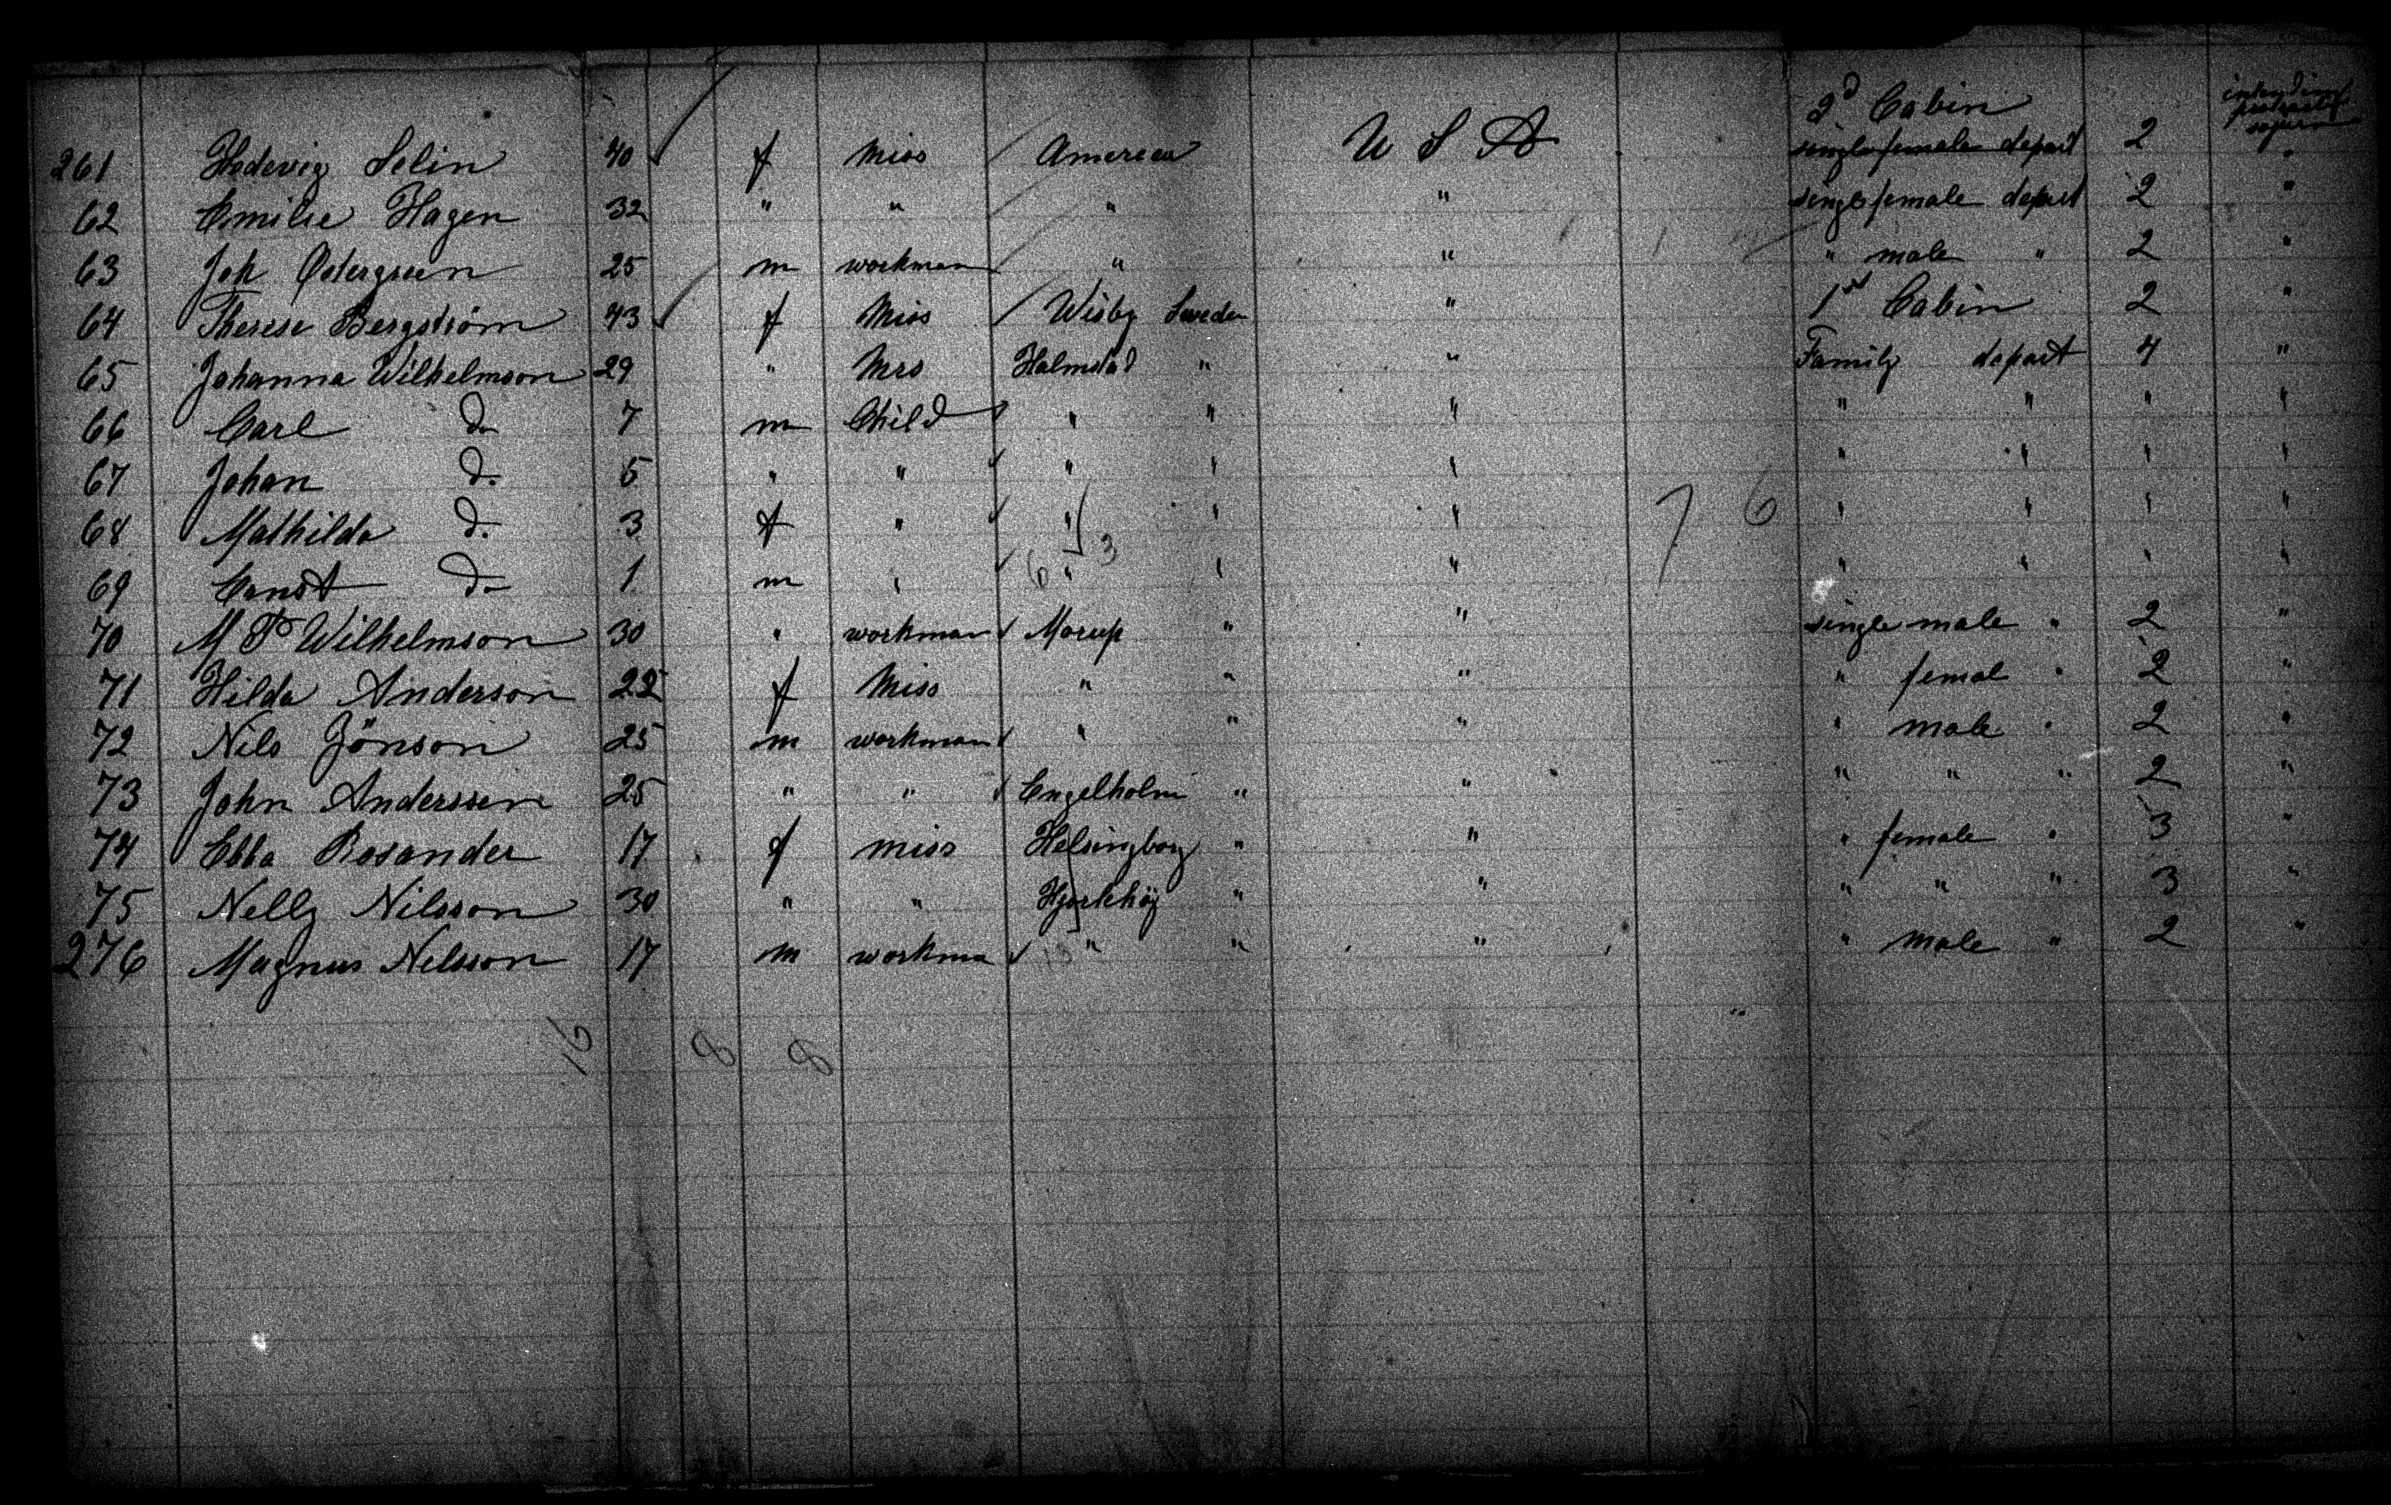 2d Cabin intending
261 Hedevig Selin 40 f Miss America U S A single female depart 2 "
62 Emilie Hagen 32 " " " " single female depart 2 "
63 Joh Ostergreen 25 m workman " " " male " 2 "
64 Therese Bergström 43 f Miss Wisby Sweden " 1st Cabin 2 "
65 Johanna Wilhelmson 29 " Mrs Halmstad " " Family depart 4 "
66 Carl do 7 m Child " " " " " " "
67 Johan do 5 " " " " " " " " "
68 Mathilda do 3 f " " " " " " " "
7 6
6 3
69 Ernst do 1 m " " " " " " " "
70 M P Wilhelmson 30 " workman Morup " " single male " 2 "
71 Hilda Anderson 22 f Miss " " " " femal " 2 "
72 Nils Jönson 25 m workman " " " " male " 2 "
73 John Anderssen 25 " " Engelholm " " " " " 2 "
74 Ebba Rosander 17 f miss Helsingborg " " " female " 3 "
75 Nelly Nilsson 30 " " " " " " " 3 "
276 Magnus Nelsson 17 m workma " " " " male " 2 "
16 8 8